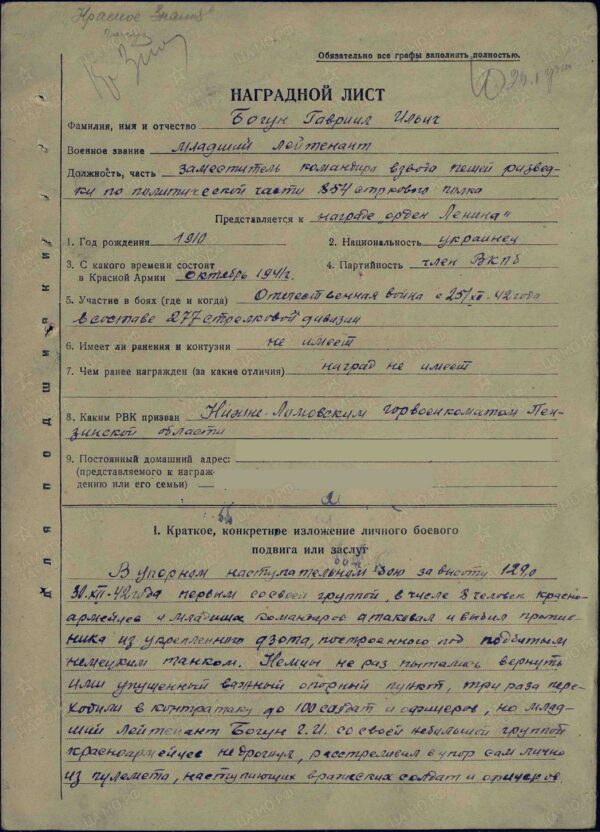 Красное Знамя
Обязательно все графы заполнить полностью.
НАГРАДНОЙ ЛИСТ
Фамилия, имя и отчество Богун Гавриил Ильич
Военное звание младший лейтенант
Должность, часть заместитель командира взвода пешей развед-
ки по политической части 854 стрелкового полка
Представляется к награде „орден Ленина"
1. Год рождения 1910 2. Национальность украинец
3. С какого времени состоит
в Красной Армии октябрь 1941г. 4. Партийность член ВКПб
5. Участие в боях (где и когда) Отечественная война с 25/XI-42 года
в составе 277 стрелковой дивизии
6. Имеет ли ранения и контузии не имеет
7. Чем ранее награжден (за какие отличия) наград не имеет
8. Каким РВК призван Нижне-Ломовским горвоенкоматом Пен-
зинской области
9. Постоянный домашний адрес:
(представляемого к награж-
дению или его семьи)
для подшивки
I. Краткое, конкретное изложение личного боевого
подвига или заслуг
В упорном наступательном бою за высоту 129,0
30.XII-42 года первым со своей группой, в числе 8 человек красно-
армейцев и младших командиров атаковал и выбил против-
ника из укрепленного дзота, построенного под подбитым
немецким танком. Немцы не раз пытались вернуть
ими упущенный важный опорный пункт, три раза пере-
ходили в контратаку до 100 солдат и офицеров, но млад-
ший лейтенант Богун Г.И. со своей небольшой группой
красноармейцев не дрогнул, расстреливал в упор сам лично
из пулемета, наступающих вражеских солдат и офицеров.